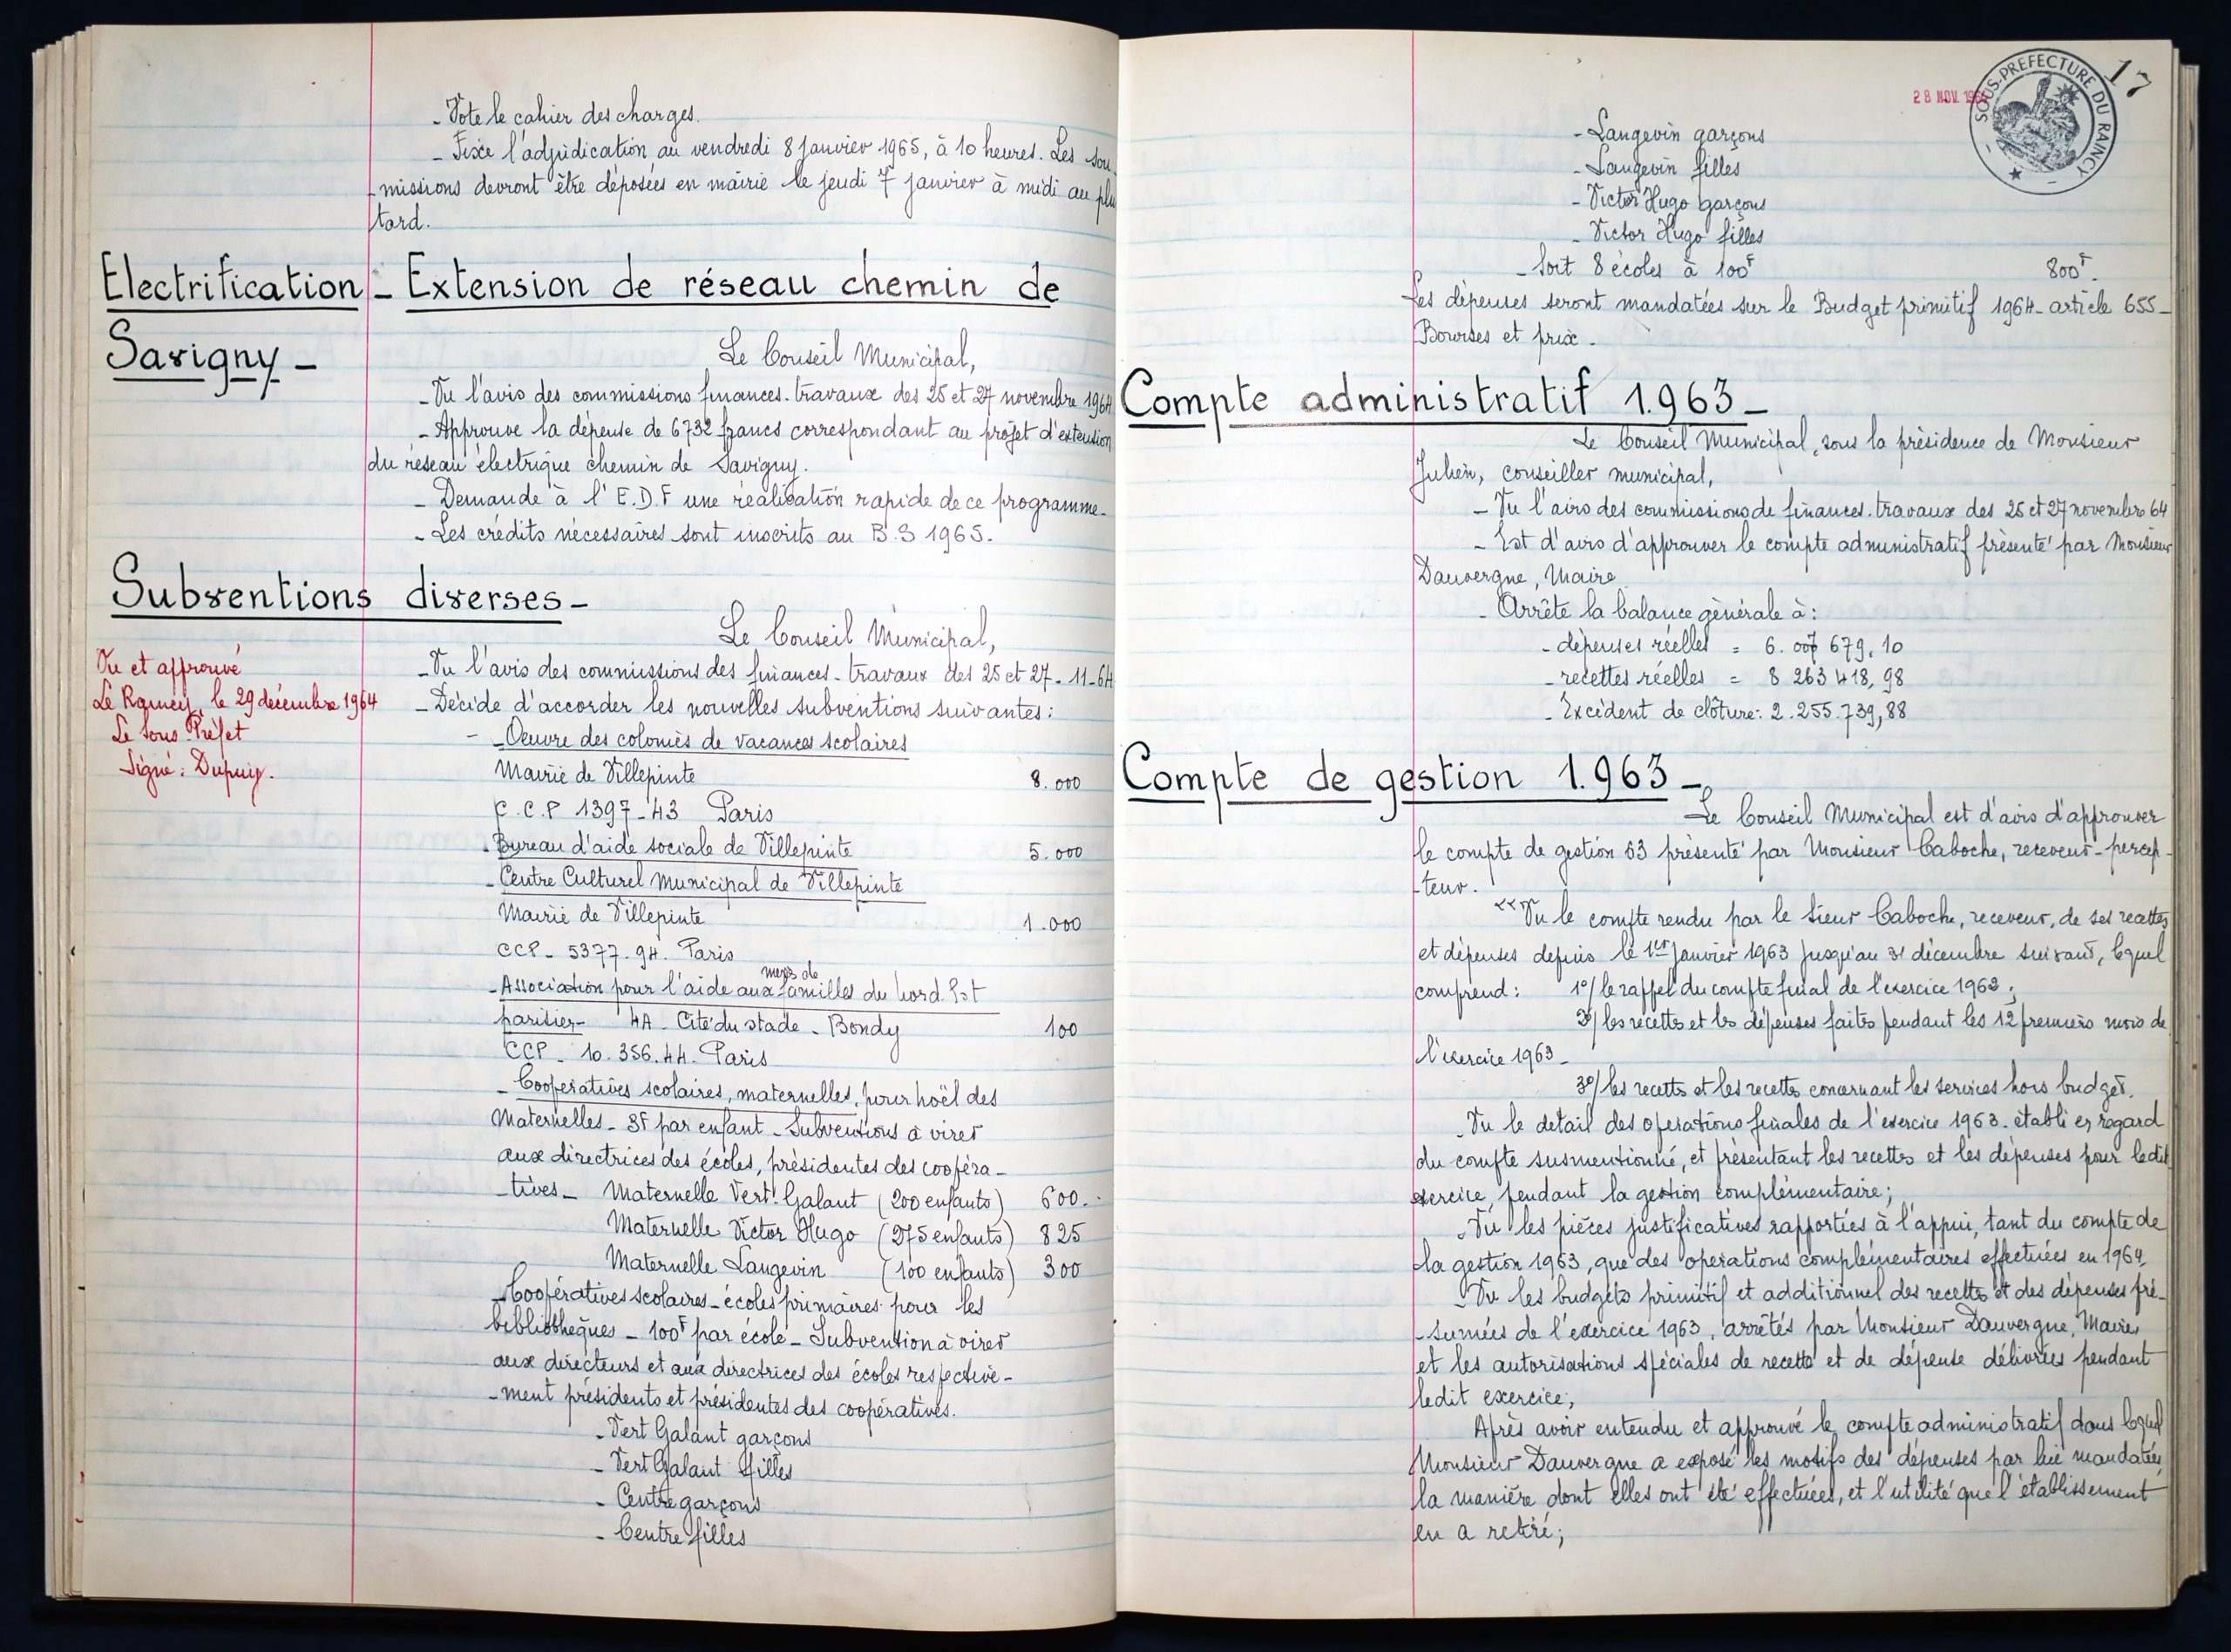 - Vote le cahier des charges.
- Fixe l'adjudication au vendredi 8 janvier 1965, à 10 heures. Les sou
-missions devront être déposées en mairie le jeudi 7 janvier à midi au plu
tard.
Electrification - Extension de réseau chemin de
Savigny -
Le Conseil Municipal,
- Vu l'avis des commissions finances. travaux des 25 et 27 novembre 1964
- Approuve la dépense de 6732 francs correspondant au projet d'extension
du réseau électrique chemin de Savigny.
- Demande à l'E.D.F une réalisation rapide de ce programme.
- Les crédits nécessaires sont inscrits au B.S 1965.
Subventions diverses -
Le Conseil Municipal,
Vu et approuvé
Le Raincy, le 29 décembre 1964
Le Sous Préfet
Signé : Dupuy.
- Vu l'avis des commissions des finances - travaux des 25 et 27-11-64
- Décide d'accorder les nouvelles subventions suivantes :
- Oeuvre des colonies de vacances scolaires
Mairie de Villepinte 8.000
C.C.P 1397-43 Paris
- Bureau d'aide sociale de Villepinte 5.000
- Centre Culturel Municipal de Villepinte
Mairie de Villepinte 1.000
CCP - 5377.94. Paris
- Association pour l'aide aux mères de familles du Nord. Est
parisien - 4A - Cité du stade - Bondy 100
CCP - 10.356.44. Paris
- Coopératives scolaires, maternelles, pour noël des
Maternelles - 3F par enfant - Subventions à virer
aux directrices des écoles, présidentes des coopéra-
-tives - Maternelle Vert Galant (200 enfants) 600.-
Maternelle Victor Hugo (275 enfants) 825
Maternelle Langevin (100 enfants) 300
- Coopératives scolaires - écoles primaires pour les
bibliothèques - 100F par école - Subvention à virer
aux directeurs et aux directrices des écoles respective-
-ment présidents et présidentes des coopératives.
- Vert Galant garçons
- Vert Galant filles
- Centre garçons
- Centre filles
17
28 NOV. 196
SOUS-PREFECTURE DU RAINCY
- Langevin garçons
- Langevin filles
- Victor Hugo garçons
- Victor Hugo filles
- Soit 8 écoles à 100F 800F.
Les dépenses seront mandatées sur le Budget primitif 1964 - article 655 -
Bourses et prix.
Compte administratif 1.963 -
Le Conseil Municipal, sous la présidence de Monsieur
Julien, conseiller municipal,
- Vu l'avis des commissions de finances. travaux des 25 et 27 novembre 64
- Est d'avis d'approuver le compte administratif présenté par Monsieur
Dauvergne, Maire
- Arrête la balance générale à :
- dépenses réelles = 6.007 679,10
- recettes réelles = 8 263 418,98
- Excédent de clôture : 2.255.739,88
Compte de gestion 1.963 -
Le Conseil Municipal est d'avis d'approuver
le compte de gestion 63 présenté par Monsieur Caboche, receveur-percep-
-teur.
Vu le compte rendu par le Sieur Caboche, receveur, de ses recettes
et dépenses depuis le 1er janvier 1963 jusqu'au 31 décembre suivant, lequel
comprend : 1°/ le rappel du compte final de l'exercice 1962 ;
2°/ les recettes et les dépenses faites pendant les 12 premiers mois de
l'exercice 1963 -
3°/ les recettes et les recettes concernant les services hors budget.
Vu le detail des opérations finales de l'exercice 1963. établi en regard
du compte susmentionné, et présentant les recettes et les dépenses pour ledit
exercice, pendant la gestion complémentaire ;
Vu les pièces justificatives rapportées à l'appui, tant du compte de
la gestion 1963, que des opérations complémentaires effectuées en 1964,
Vu les budgets primitif et additionnel des recettes et des dépenses pré-
-sumées de l'exercice 1963, arrêtés par Monsieur Dauvergne, Maire,
et les autorisations spéciales de recette et de dépense délivrées pendant
ledit exercice ;
Après avoir entendu et approuvé le compte administratif dans lequel
Monsieur Dauvergne a exposé les motifs des dépenses par lui mandatées
la manière dont elles ont été effectuées, et l'utilité que l'établissement
en a retiré ;